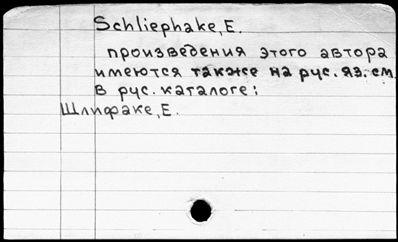 Schliephake, E.
произведения этого автора
имеются также на рус. яз. см.
в рус. каталоге:
Шлифаке, Е.